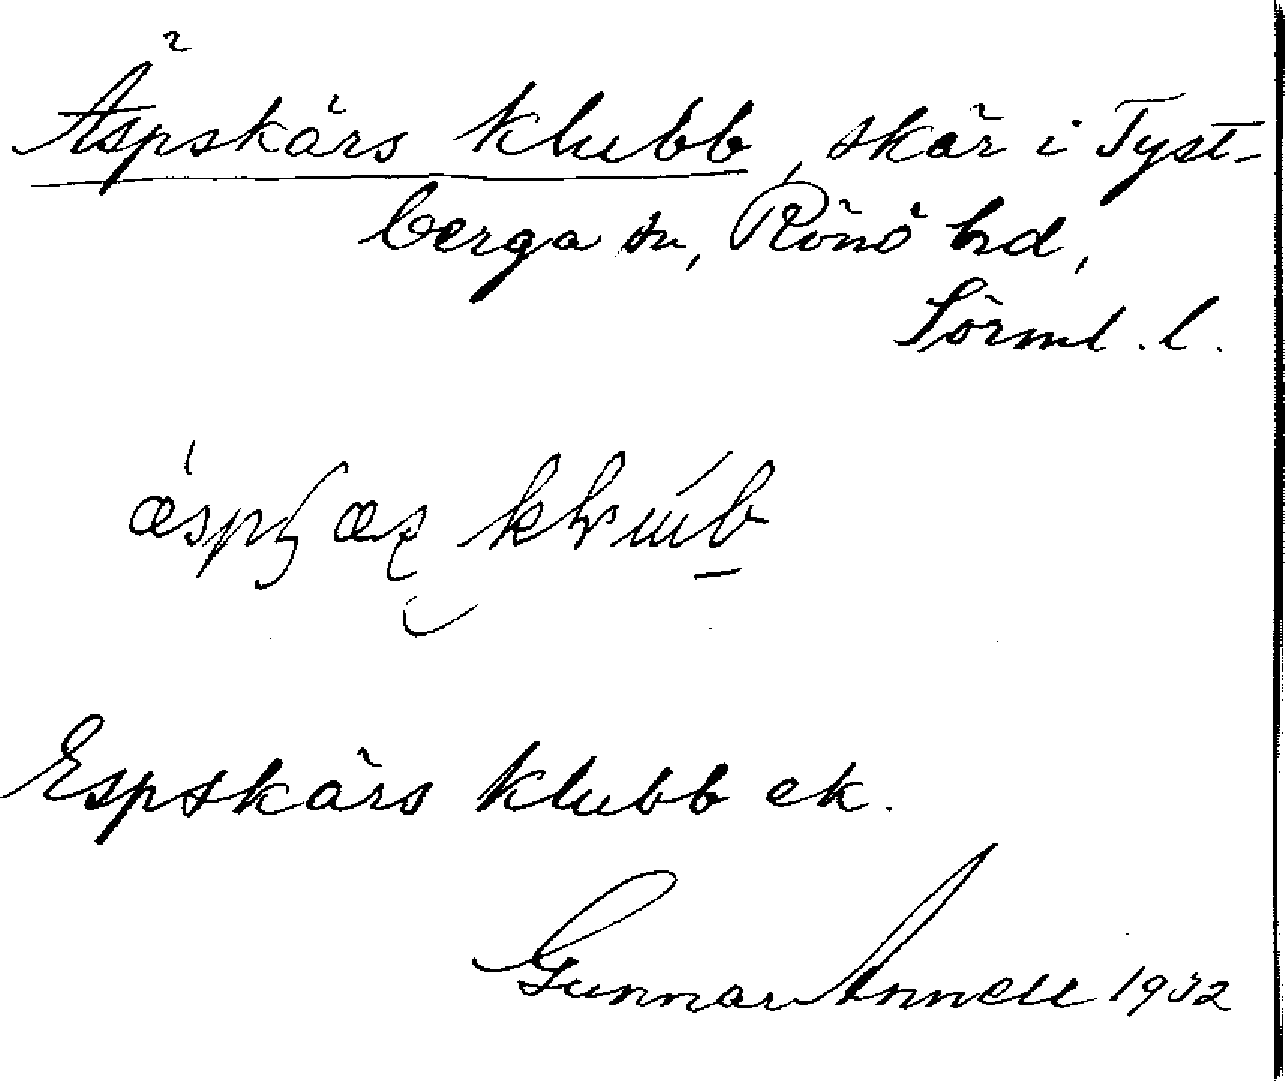 Äspskärs klubb, skär i Tyst-
berga sn, Rönö hd,
Sörml. l.
Espskärs klubb ek.
Gunnar Annell 1932